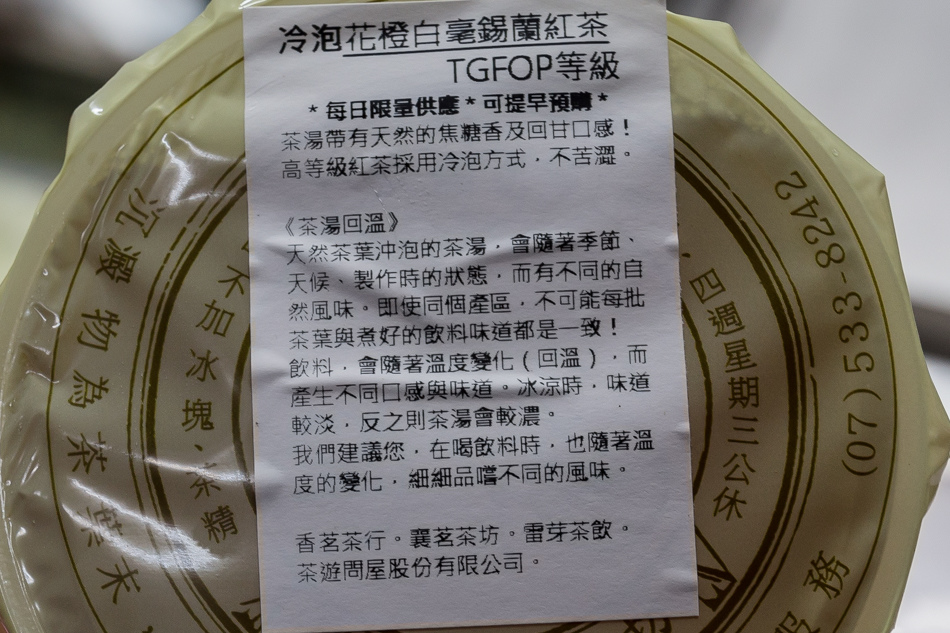 冷泡花橙白毫錫蘭紅茶
TGFOP等級
*每日限量供應*可提早預購*
茶湯帶有天然的焦糖香及回甘口感！
高等級紅茶採用冷泡方式，不苦澀。
《茶湯回溫》
天然茶葉沖泡的茶湯，會隨著季節、
天候、製作時的狀態，而有不同的自
然風味。即使同個產區，不可能每批
茶葉與煮好的飲料味道都是一致！
飲料，會隨著溫度變化（回溫），而
產生不同口感與味道。冰涼時，味道
較淡，反之則茶湯會較濃。
我們建議您，在喝飲料時，也隨著溫
度的變化，細細品嚐不同的風味。
香茗茶行。襄茗茶坊。雷芽茶飲。
茶遊問屋股份有限公司。
沉澱物為茶葉末
不加冰塊、茶精
、四週星期三公休
(07)533-8242
服務